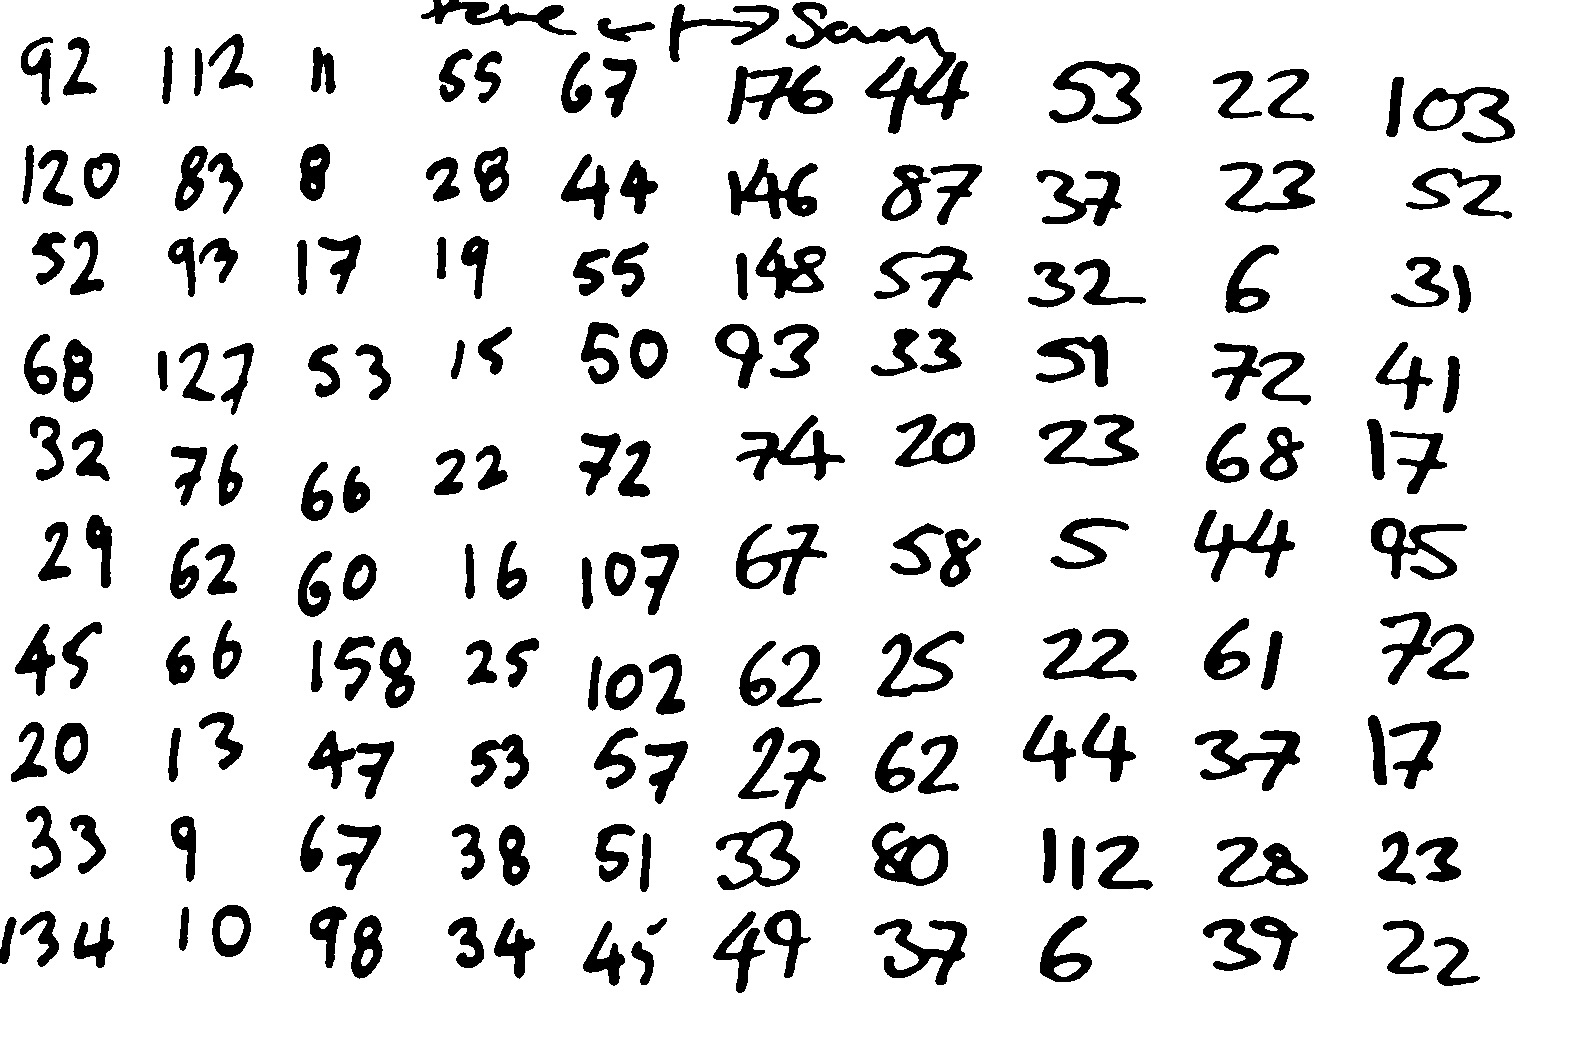 Steve ← | → Sam
92 112 11 55 67 176 44 53 22 103
120 83 8 28 44 146 87 37 23 52
52 93 17 19 55 148 57 32 6 31
68 127 53 15 50 93 33 51 72 41
32 76 66 22 72 74 20 23 68 17
29 62 60 16 107 67 58 5 44 95
45 66 158 25 102 62 25 22 61 72
20 13 47 53 57 27 62 44 37 17
33 9 67 38 51 33 80 112 28 23
134 10 98 34 45 49 37 6 39 22